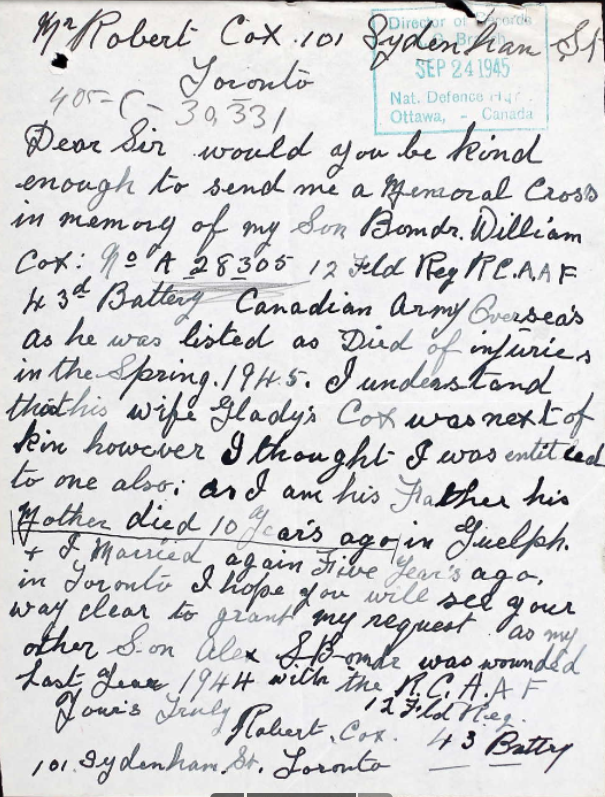 Mr Robert Cox. 101 Sydenham St
Toronto
Director of Records
Branch
SEP 24 1945
Nat. Defence
Ottawa, - Canada
405-C-30,331
Dear Sir would you be kind
enough to send me a Memoral Cross
in memory of my Son Bomdr. William
Cox: No A 28305 12 Fld Reg R.C.A.A F
43d Battery Canadian Army Overseas
as he was listed as Died of injuries
in the Spring. 1945. I understand
that his wife Gladys Cox was next of
kin however I thought I was entitled
to one also; as I am his Father his
Mother died 10 Year's ago in Guelph.
+ I Married again Five Year's ago.
in Toronto I hope you will see your
way clear to grant my request as my
other Son Alex S.Bomdr was wounded
Last Year 1944 with the R.C.A.A F
12 Fld Reg.
Your's Truly
Robert. Cox. 43 Battry
101. Sydenham. St. Toronto